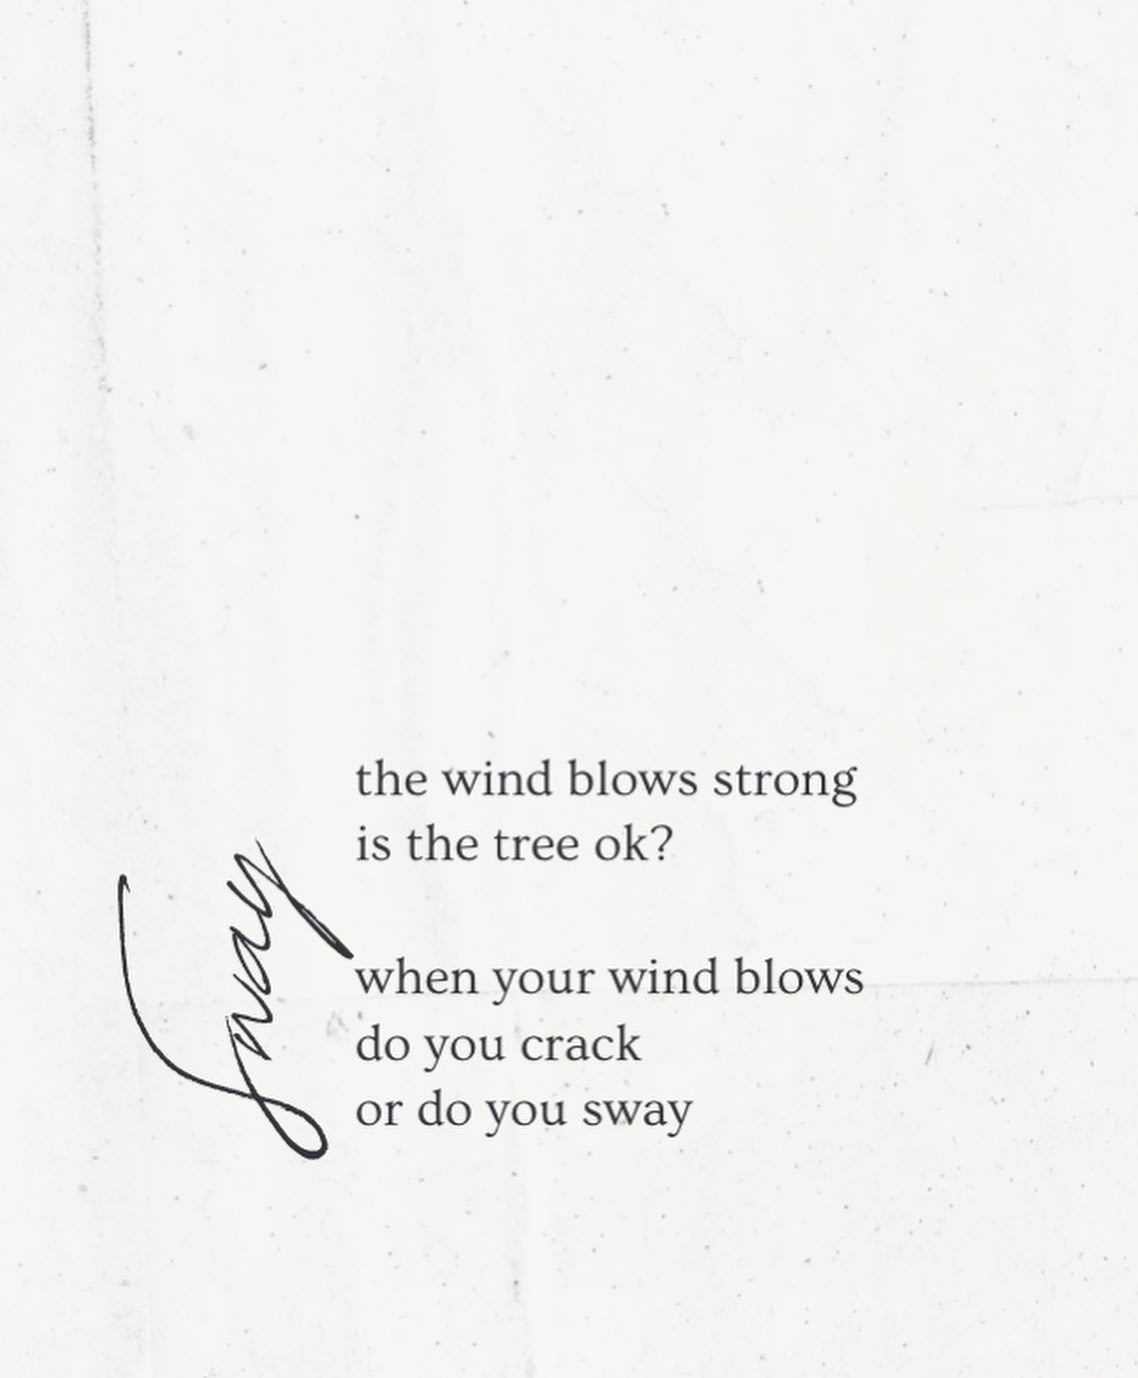 Sway
the wind blows strong
is the tree ok?
when your wind blows
do you crack
or do you sway